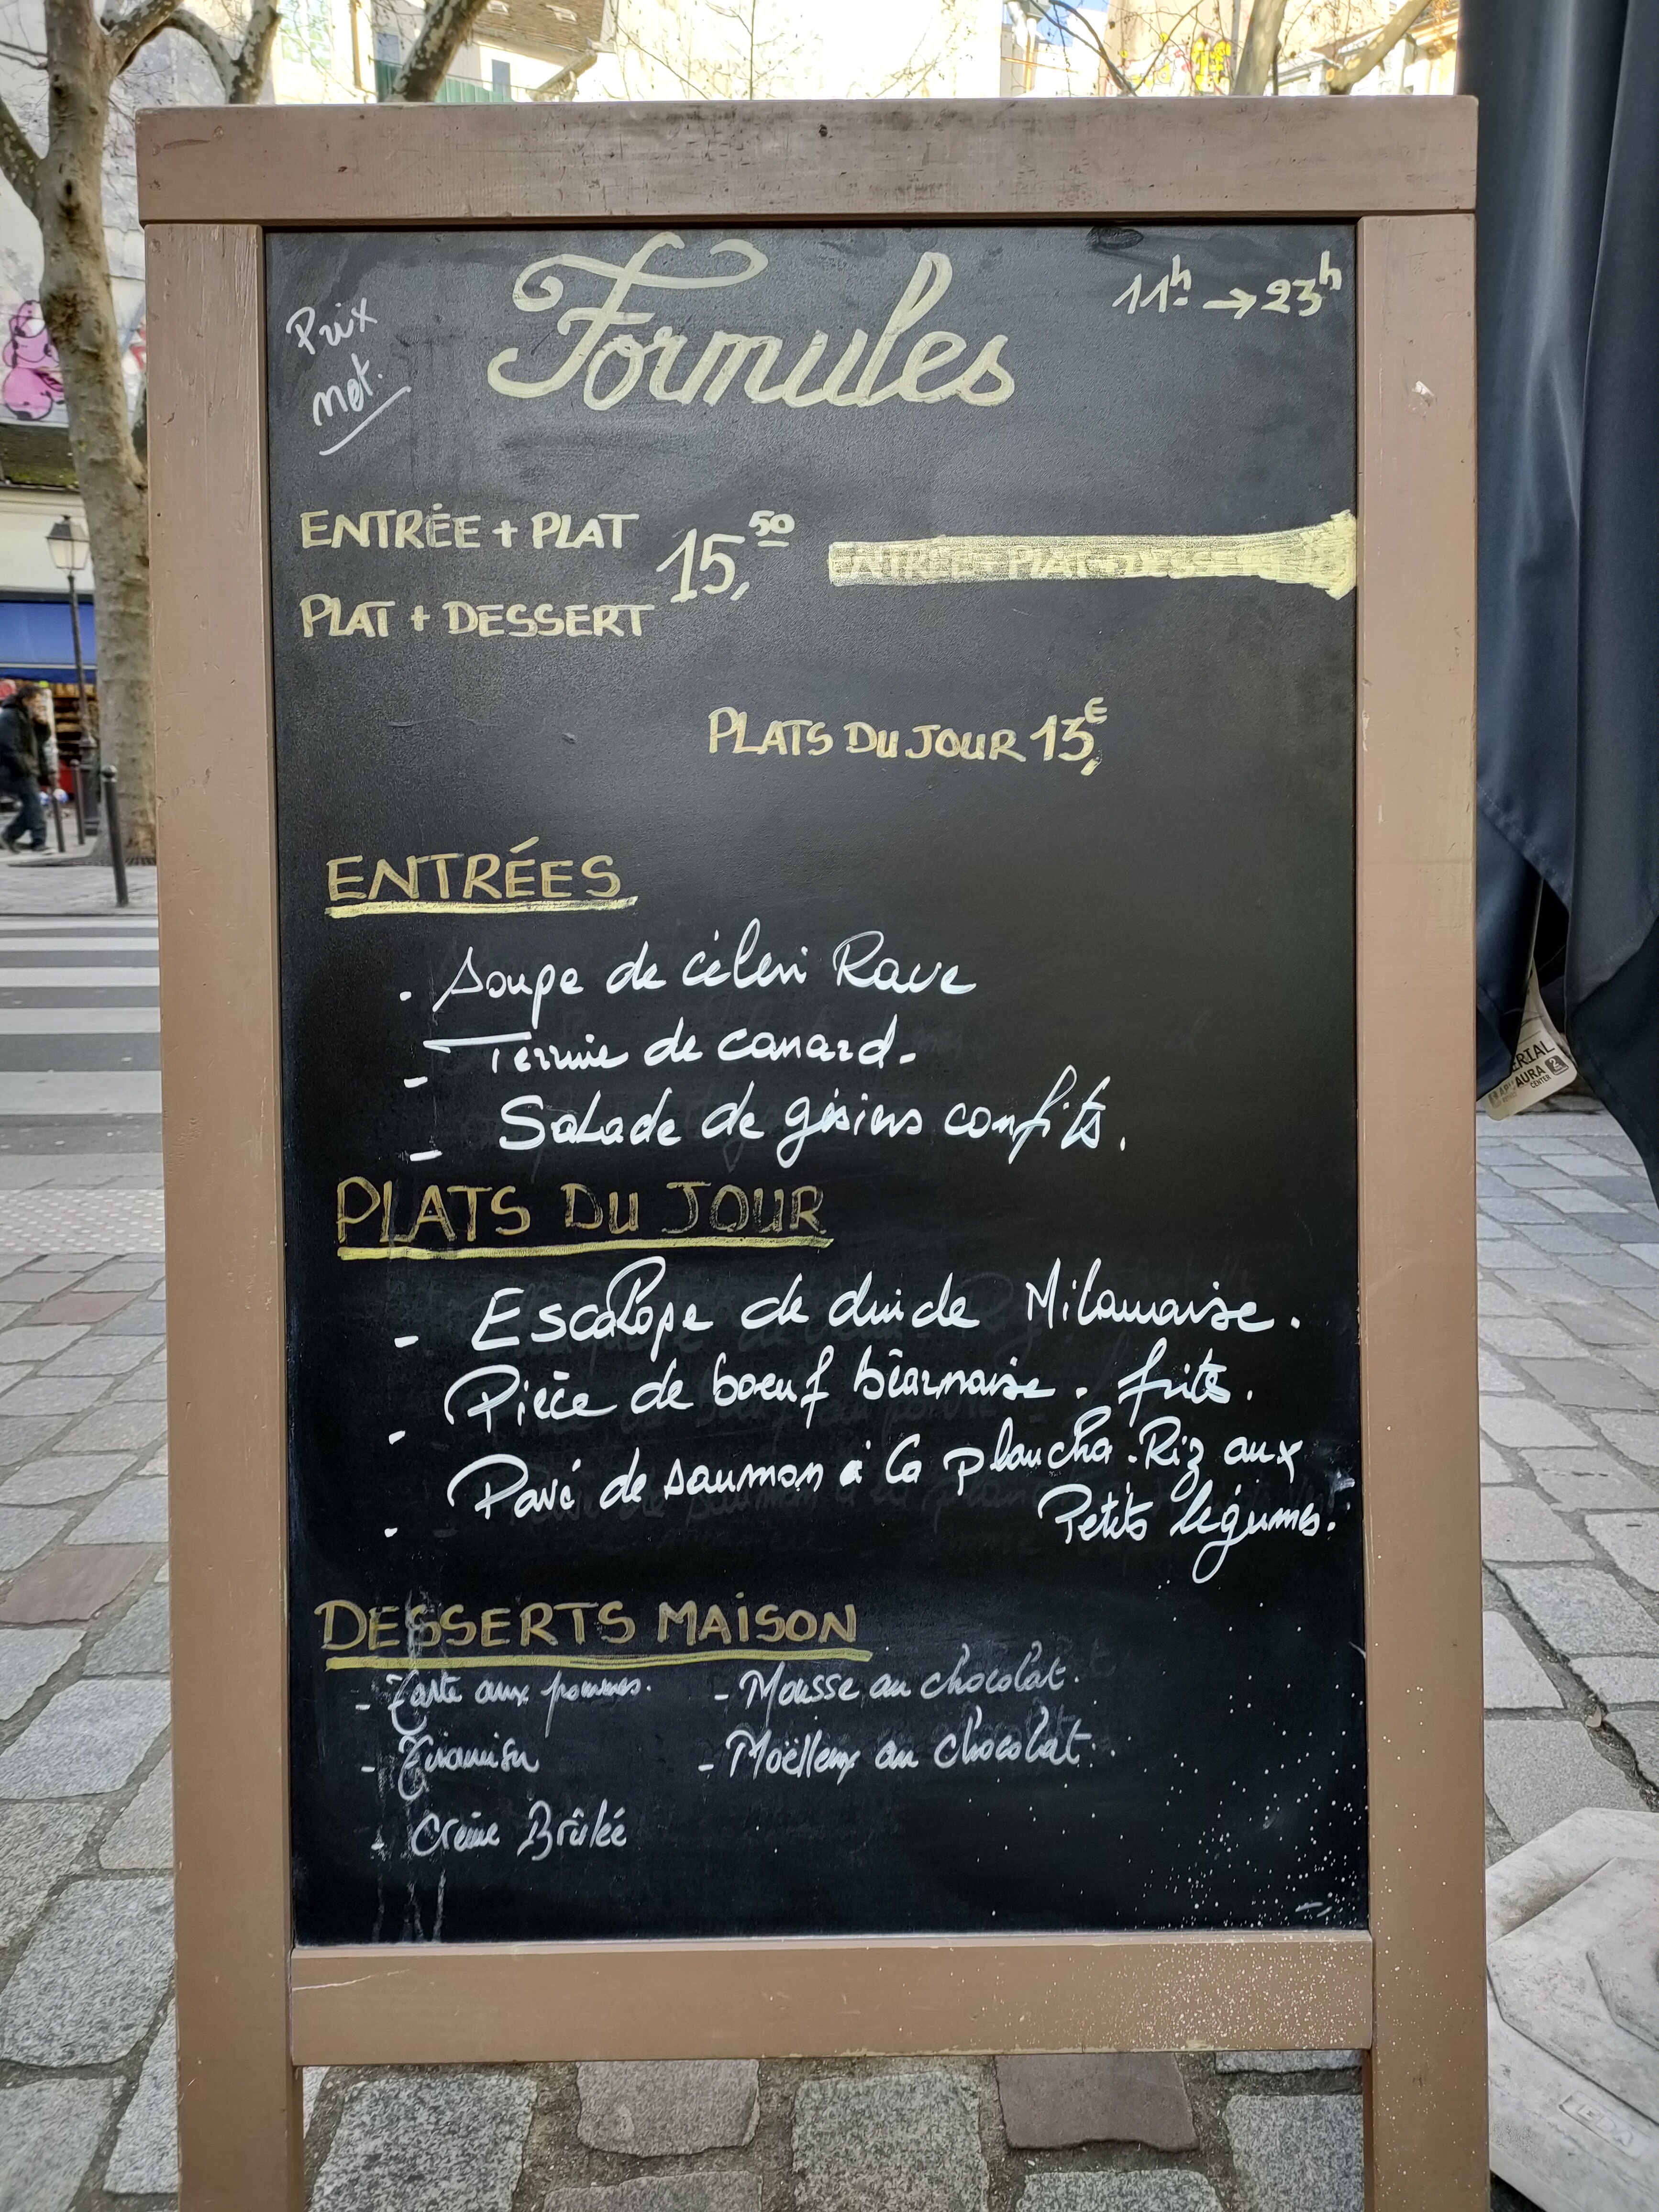 Formules
11h → 23h
Prix
net.
ENTRÉE + PLAT
15,50
PLAT + DESSERT
ENTRÉE + PLAT + DESSERT
PLATS DU JOUR 13,€
ENTRÉES
. Soupe de céleri Rave
- Terrine de canard.
- Salade de gésiers confits.
PLATS DU JOUR
- Escalope de dinde Milanaise.
- Pièce de boeuf béarnaise. frites.
- Pavé de saumon à la plancha. Riz aux
Petits légumes.
DESSERTS MAISON
- Tarte aux pommes. - Mousse au chocolat.
- Tiramisu - Moëlleux au chocolat.
- Crème Brûlée
ERIAL
AURA 2
CENTER